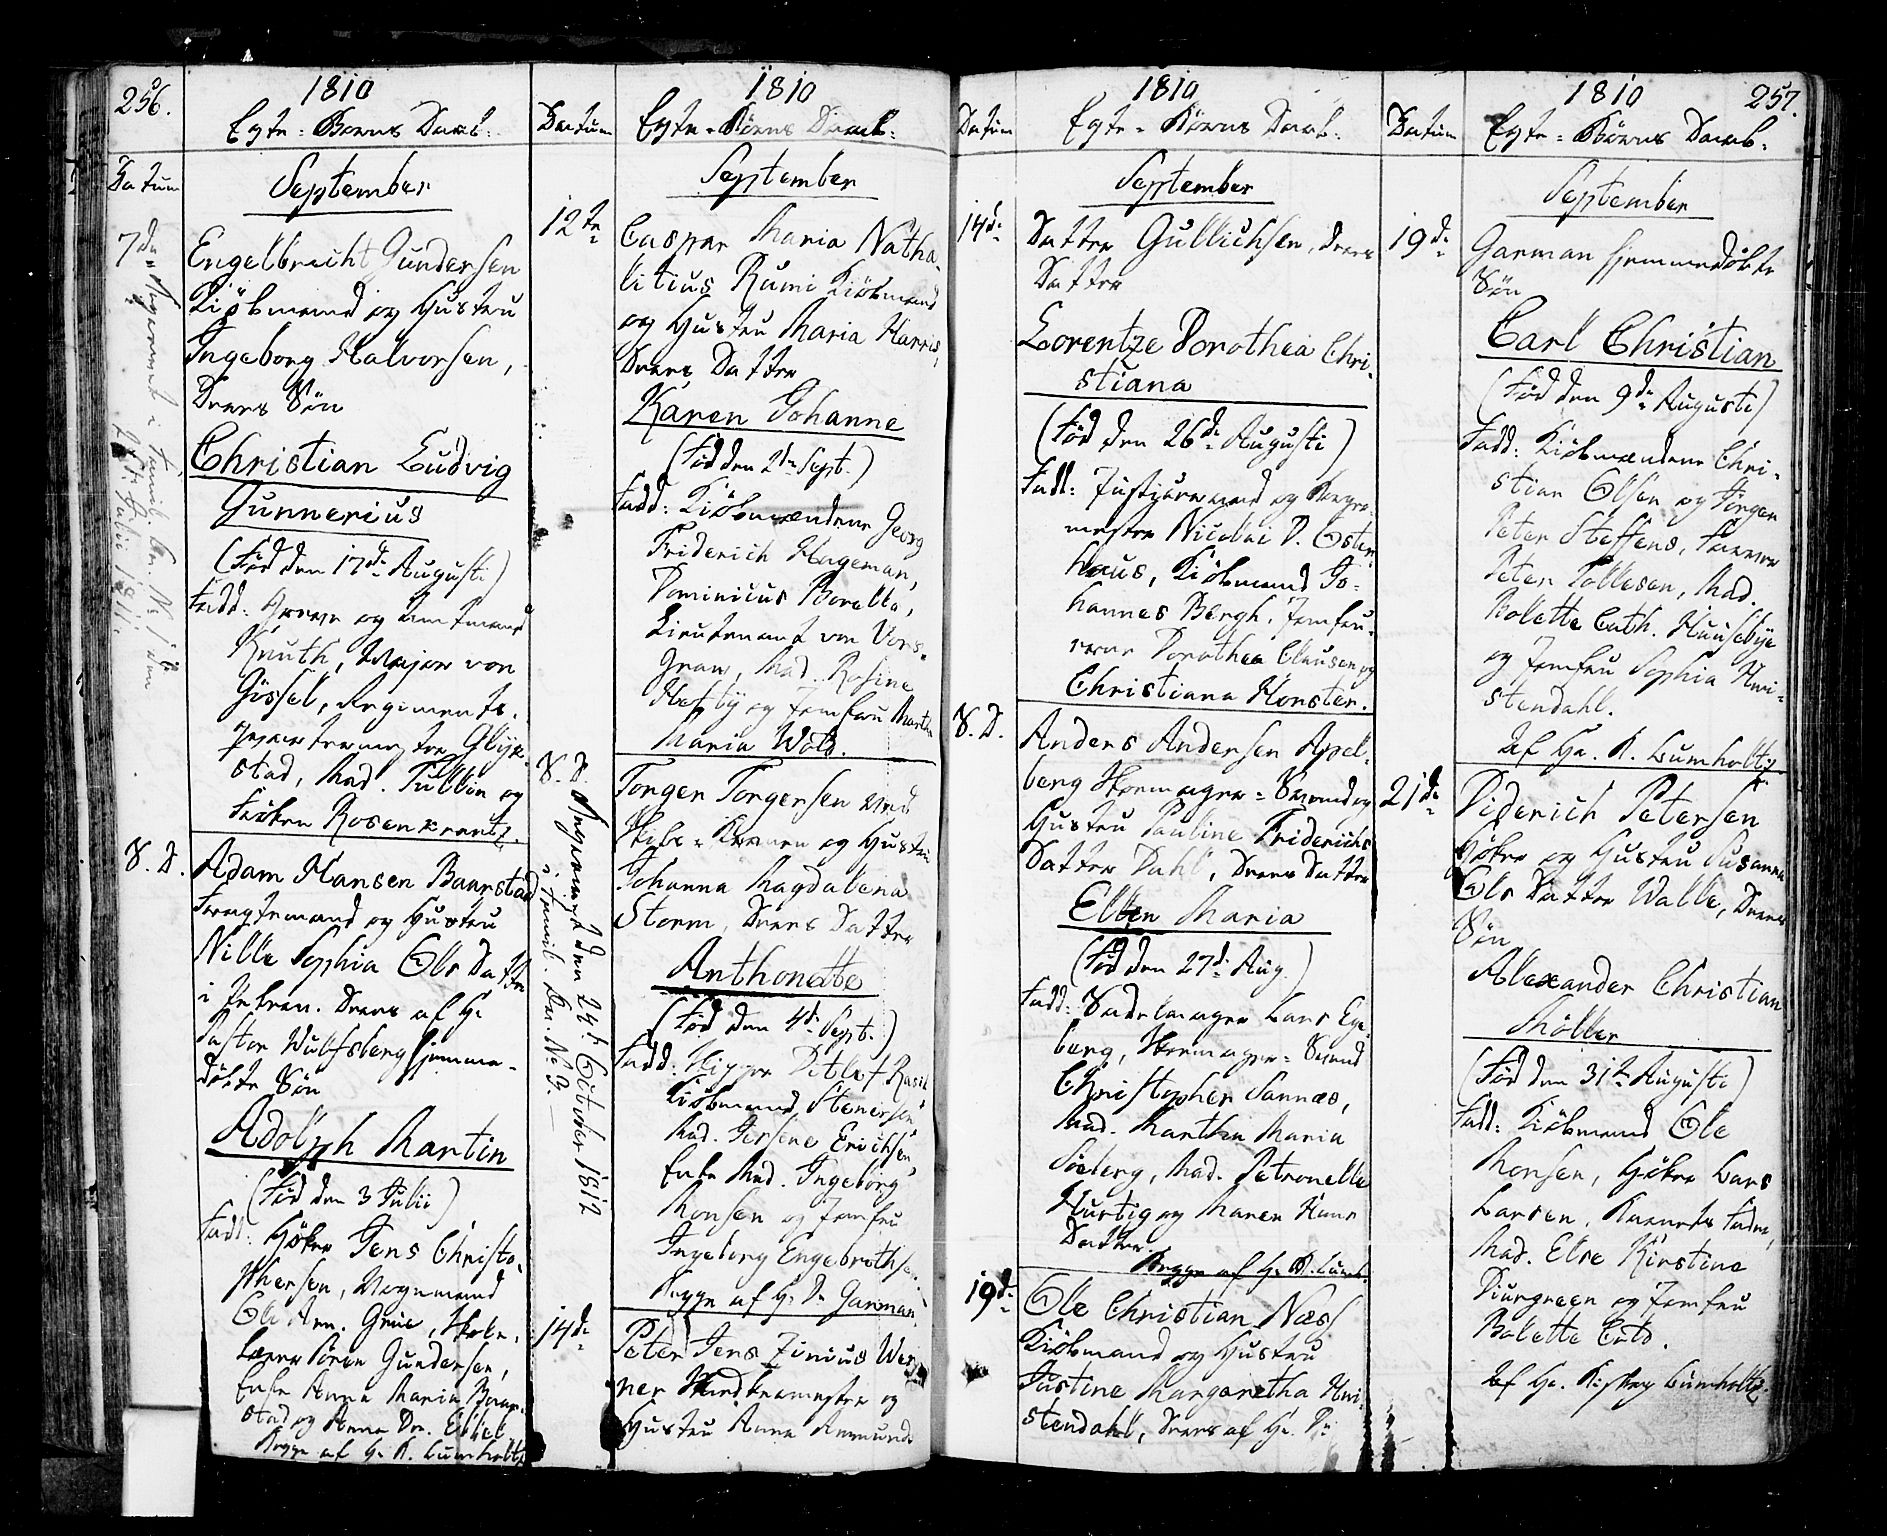 256.
1810
Egte = Børns Daab.
Datum
September
7de
Engelbrecht Gundersen
Kiöbmand og Hustru
Ingeborg Halvorsen,
Deres Sön
Christian Ludvig
Gunnerius
(Fød den 17de Augusti)
Fadd: Greve og Amtmand
Knuth, Major von
Gissel, Regiments-
Qvarteermester Glück-
stad, Mad. Tullin og
Frøken Rosenkrantz.
S. D.
Adam Hansen Baarstad
Fragtemand og Hustru
Nille Sophia Ols Datter
i Pebren. Deres af Hr
Pastor Wulfsberg hjemme-
döbte Sön
Adolph Martin
(Fød den 3 Julii)
Fadd: Høker Jens Christo-
phersen, Vognmand
Ole And. Grüe, Skole-
lærer Sören Gundersen,
Enke Anna Maria Baar-
stad og Anna Do. Ebbel
Begge af Hr K. Lumholtz
Datum
1810
Egte = Børns Daab.
September
12te
Caspar Maria Natha-
litius Rumi Kiöbmand
og Hustru Maria Harris,
Deres Datter
Karen Johanne
(Fød den 2de Sept.)
Fadd: Kiöbmændene Georg
Friderich Hageman,
Dominicus Borella,
Lieutenant von Vors-
graw, Mad. Rosine
Heftÿ og Jomfru Marthe
Maria Wold.
S. D. Vaccineret den 24de October 1812
i Famil. Prot. No 9.
Torger Torgersen ved
Skibs-Broen og Hustru
Johanna Magdalena
Storm, Deres Datter
Anthonette
(Fød den 4de Sept.)
Fadd: Skipper Ditlef Rasch
Kiöbmand Stenersen
Mad. Jersine Erichsen,
Enke Mad. Ingeborg
Monsen og Jomfru
Ingeborg Engebrethsen
Begge af Hr Dr Garman.
14de
Peter Jens Zinius Wer-
ner Skredkermester og
Hustru Anna Amunds
Datum
1810
Egte = Børns Daab.
September
14de
Datter Gullichsen, Deres
Datter
Lorentze Dorothea Chri-
stiana
(Fød den 26de Augusti)
Fadd: Justitsraad og Borge-
mester Nicolai P. Osten
haus, Kiöbmand Jo-
hannes Bergh, Jomfru-
erne Dorothea Clausen og
Christiana Monsten.
S. D.
Anders Andersen Apel-
berg Skomager = Svend og
Hustru Pauline Friderichs
Datter Dahl, Deres Datter
Ellen Maria
(Fød den 27de Aug.)
Fadd: Sadelmager Lars Ege-
berg, Skomager = Svend
Christopher Sannæs,
Mad. Martha Maria
Søeberg, Mad. Petronelle
Hurtig og Maren Hans
Datter.
Begge af Hr K. Lumh.
19de
Ole Christian Næss
Kiöbmand og Hustru
Justine Margaretha Hvi-
stendahl, Deres af Hr. Dr
Datum
1810
257.
Egte = Børns Daab.
September
19de
Garman hjemmedöbte
Sön
Carl Christian
(Fød den 9de Augusti)
Fadd: Kiöbmændene Chri-
stian Olsen og Jörgen
Peter Steffens, Farver
Peter Tollesen, Mad.
Bolette Cath. Huusebye
og Jomfru Sophia Hvi-
stendahl.
af Hr. K. Lumholtz
21de
Diderich Petersen
Høker og Hustru Susanna
Ols Datter Walle, Deres
Sön
Alexander Christian
Möller
(Fød den 31te Augusti)
Fadd: Kiöbmand Ole
Monsen, Høker Lars
Larsen, Barnets Fader,
Mad. Else Kirstine
Diurgreen og Jomfru
Bolette Cold.
af Hr. Lumholtz.